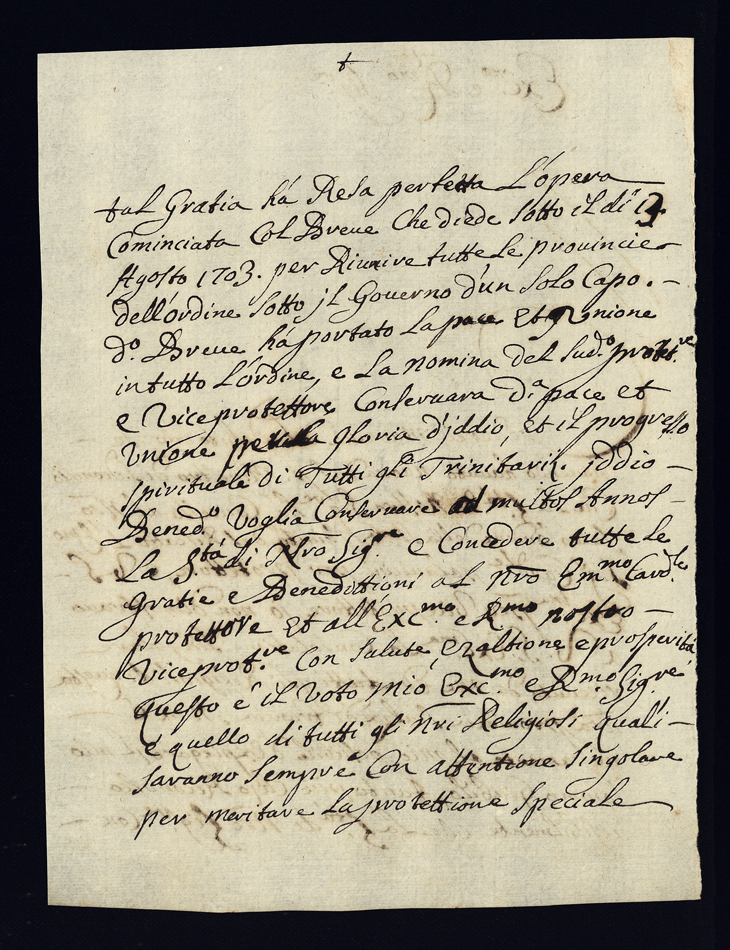 +
tal Gratia há Resa perfetta L'opera
Cominciata Col Breve Che diede sotto il di
Agosto 1703. per Riunire tutte le provincie
dell'ordine sotto jl Governo d'un solo Capo. -
d.º Breve há portato la pace et Unione
in tutto L'ordine, e La nomina del sud.º protet.re
e Viceprotettore Conservara d.ª pace et
Unione per la gloria d'jddio, et il progresso
spirituale di Tutti gli Trinitarij. jddio -
Bened.º voglia Conservare ad multos Annos -
La S.tá di Nro Sig.re e Concedere tutte le
Gratie e Benedittioni al nro Em.mo Card.le
protettore et all'Exc.mo e R.mo nostro -
Viceprot.re Con salute, ezaltione e prosperitá
questo e' il voto mio Exc.mo e R.mo Sig.re
e quello di tutti gli nri Religiosi quali -
saranno sempre Con attentione singolare
per meritare la protettione speciale